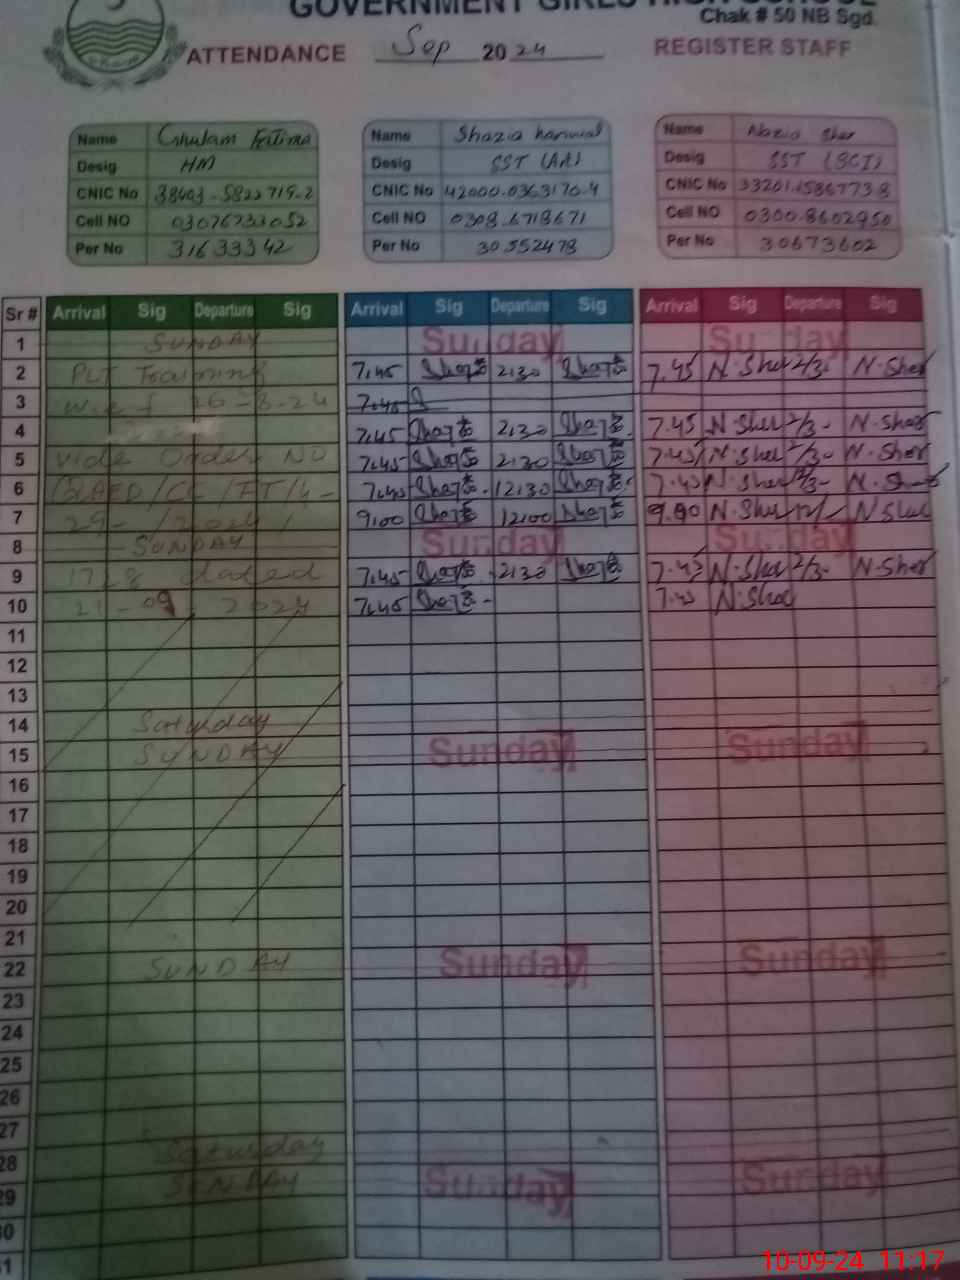 GOVERNMENT GIRLS HIGH SCHOOL
Chak # 50 NB Sgd.
ATTENDANCE Sep 2024 REGISTER STAFF
Name Ghulam Fatima
Desig HM
CNIC No 38403-5822719-2
Cell NO 03076733052
Per No 31633342
Name Shazia kanwal
Desig SST (Art)
CNIC No 42000-0363170-4
Cell NO 0308-6718671
Per No 30552478
Name Nazia Sher
Desig SST (SCI)
CNIC No 33201-15867738
Cell NO 0300-8602950
Per No 30673602
Sr # Arrival Sig Departure Sig Arrival Sig Departure Sig Arrival Sig Departure Sig
1 SUNDAY Sunday Sunday
2 PLT Training 7.45 2:30 7.45 N.Sher 2/3- N.Sher
3 w.e.f 26-8-24 7.45
4 7.45 2:30 7.45 N.Sher 2/3- N.Sher
5 vide Order No 7.45 2:30 7.45 N.Sher 2/3- N.Sher
6 7.45 12:30 7.45 N.Sher N.Sher
7 9:00 12:00 9.00 N.Sher 12/- N Sher
8 SUNDAY Sunday Sunday
9 dated 7.45 2:30 7.45 N.Sher 2/3- N.Sher
10 21-09 2024 7.45 7.45 N.Sher
11
12
13
14 Saturday
15 SUNDAY Sunday Sunday
16
17
18
19
20
21
22 SUNDAY Sunday Sunday
23
24
25
26
27
28 Saturday
29 SUNDAY Sunday Sunday
30
31
10-09-24 11:17